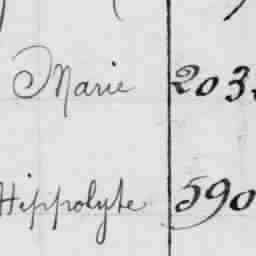 Marie 203
Hippolyte 590